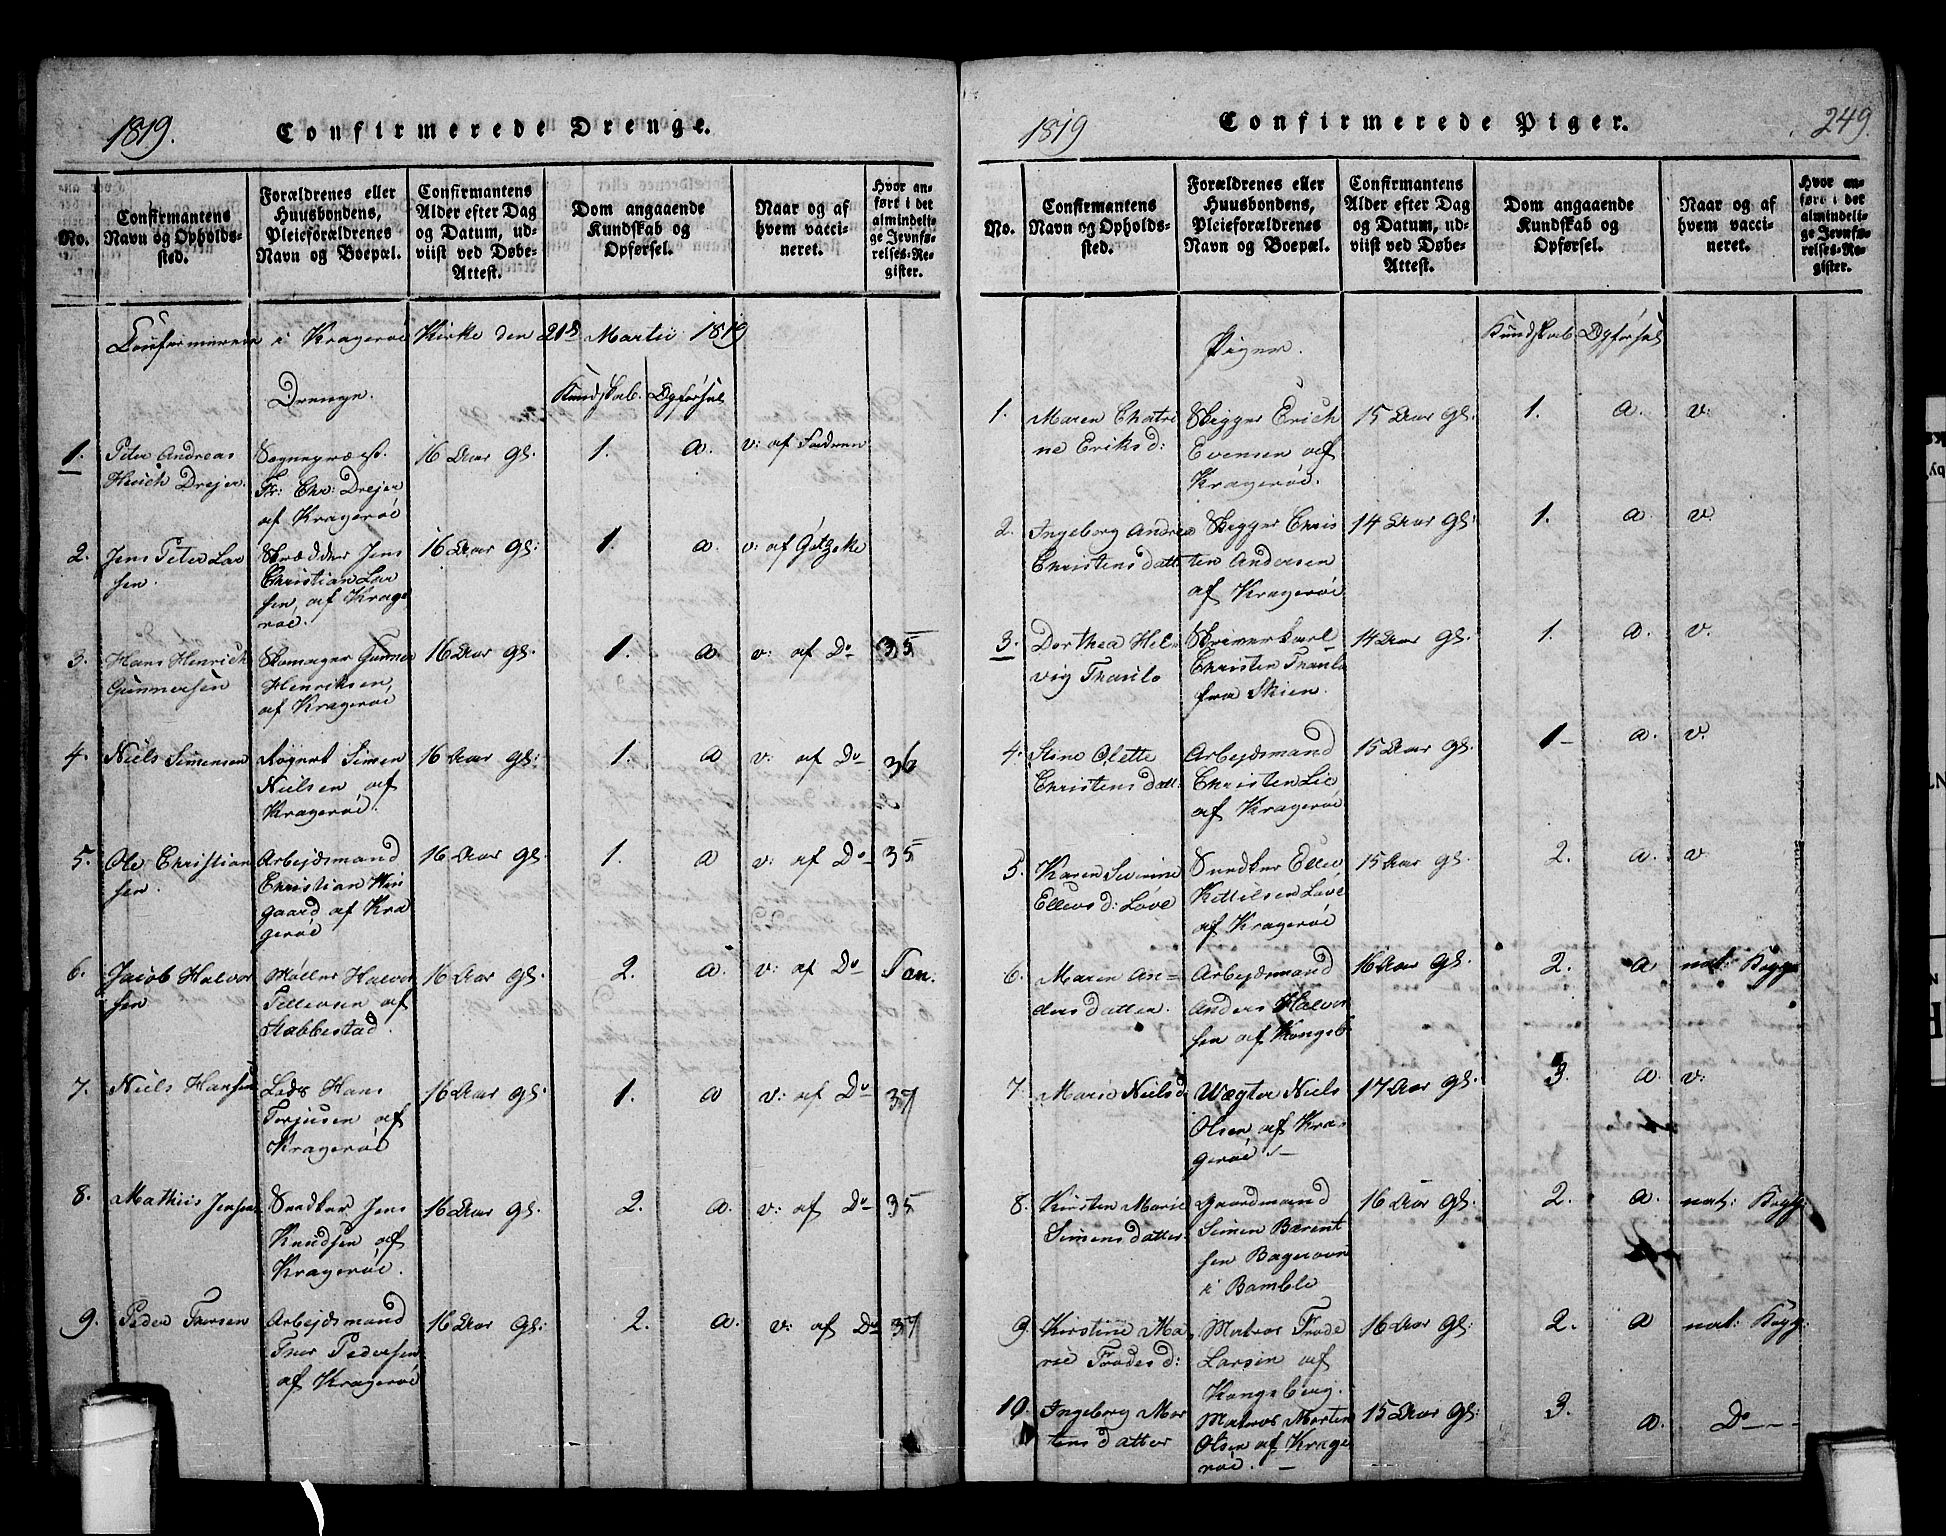 1819.
Confirmerede Drenge.
No.
Confirmantens
Navn og Opholds-
sted.
Forældrenes eller
Huusbondens,
Pleieforældrenes
Navn og Boepæl.
Confirmantens
Alder efter Dag
og Datum, ud-
viist ved Døbe-
Attest.
Dom angaaende
Kundskab og
Opførsel.
Naar og af
hvem vacci-
neret.
Hvor an-
ført i det
almindeli-
ge Jevnfø-
relses-Re-
gister.
i Kragerøe Kirke den 21de Martii 1819
Drenge.
Kundskab. Opførsel
1.
Peter Andreas
Hesich Drejer.
Sognepræst
Fr: Chr: Drejer
af Kragerøe
16 Aar Gl:
1.
a.
v: af Faderen
2.
Jens Peter Lar
sen.
Skrædder Jens
Christian Lar
sen, af Krage
røe.
16 Aar Gl:
1.
a.
v: af Götzske
3.
Hans Henrich
Gunnersen
Skomager Gunner
Henriksen,
af Kragerøe
16 Aar Gl:
1.
a
v: af Do
35
4.
Niels Simensen
Simen
Nielsen af
Kragerøe.
16 Aar gl:
1.
a
v: af Do
36
5.
Ole Christian
sen.
Arbejdsmand
Christian Win
gaard af Kra
gerøe
16 Aar Gl.
1.
a
v: af Do
35
6.
Jacob Halvor
sen
Møller Halvor
Tellevsen af
Stabbestad.
16 Aar Gl.
2.
a.
v: af Do
7.
Niels Hansen
Lods Hans
Terjusen af
Kragerøe
16 Aar Gl:
1.
a
v: af Do
37
8.
Mathias Jensen
Snedker Jens
Knudsen af
Kragerøe.
16 Aar Gl.
2.
a.
v: af Do
35
9.
Peder Thorsen
Arbejdsmand
Thor Pedersen
af Kragerøe
16 Aar Gl:
2.
a.
v: af Do
37
1819
Confirmerede Piger.
249.
No.
Confirmantens
Navn og Opholds-
sted.
Forældrenes eller
Huusbondens,
Pleieforældrenes
Navn og Boepæl.
Confirmantens
Alder efter Dag
og Datum, ud-
viist ved Døbe-
Attest.
Dom angaaende
Kundskab og
Opførsel.
Naar og af
hvem vacci-
neret.
Hvor an-
ført i det
almindeli-
ge Jevnfø-
relses-Re-
gister.
Piger.
Kundskab. Opførsel
1.
Maren Chatri
ne Eriksd:
Skipper Erich
Evensen af
Kragerøe.
15 Aar Gl:
1.
a.
v:
2.
Ingeborg Andrea
Christensdatt
Skipper Chris
ten Andersen
af Kragerøe
14 Aar Gl:
1.
a
v.
3.
Dorthea Hel-
vig Thaulo
Skriverkarl
Christen Thaulo
fra Skien.
14 Aar Gl:
1.
a.
v.
4.
Stine Olette
Christensdatt.
Arbejdsmand
Christen Lie
af Kragerøe
15 Aar Gl:
1-
a.
v.
5.
Karen Severine
Ellevsd: Løve
Snedker Ellev
Kittilsen Løve
af Kragerøe
15 Aar Gl:
2.
a.
v
6.
Maren An-
dersdatter.
Arbejdsmand
Anders Halvor
sen af Kongsb
16 Aar Gl.
2.
a
nat: Kopp:
7.
Marie Nielsd
Wægter Niels
Olsen af Kra-
gerøe.-
17 Aar Gl:
3.
a.
v:
8.
Kirsten Marie
Simensdatter
Gaardmand
Simen Bærent
sen Bagerovn
i Bamble
16 Aar Gl:
2.
a.
nat: Kopp:
9
Kirstine Ma
rie Frodesd:
Matros Frode
Larsen af
Kongsberg.
16 Aar Gl:
2.
a
nat: Kopp:
10.
Ingeborg Mor
tensdatter
Matros Morten
Olsen af Krage
røe. -
15 Aar Gl:
3.
a.
Do - -